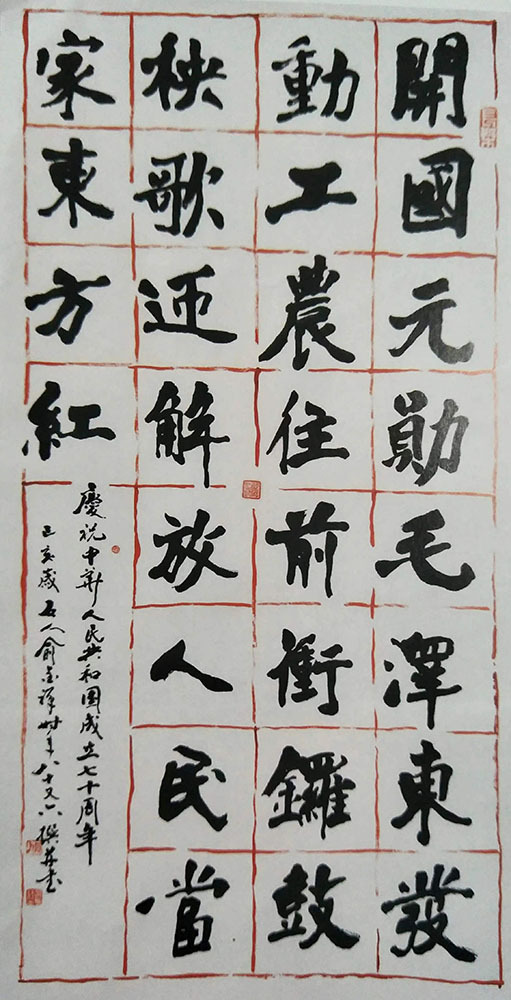 開國元勛毛澤東發
動工農往前衝鑼鼓
秧歌迎解放人民當
家東方紅
慶祝中華人民共和國成立七十周年
己亥歲 人俞 祥时年八十又六撰并书